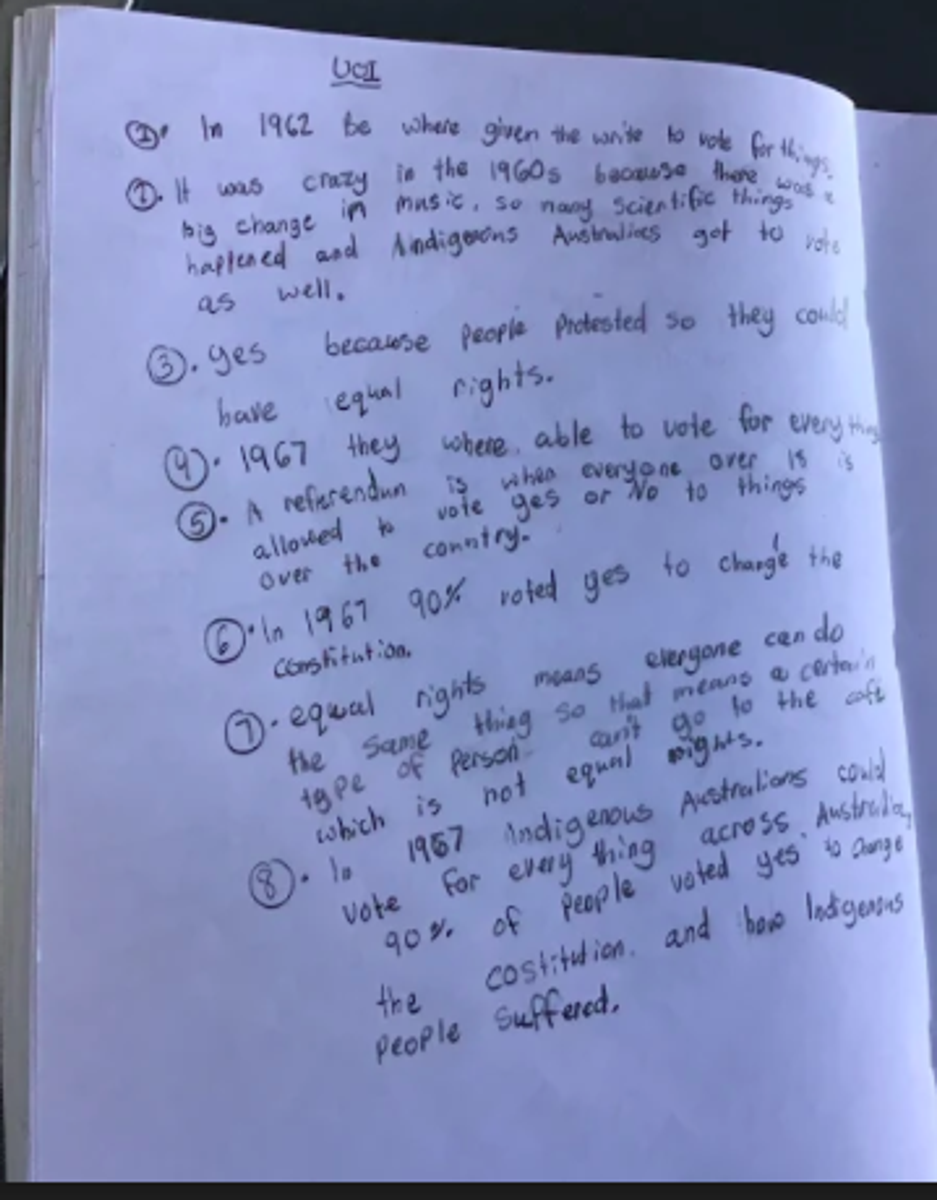 UOI
②. In 1962 be where given the write to vote for things.
①. It was crazy in the 1960s because there was a
big change in music. so many scientific things
happened and Indigeons Australias got to vote
as well.
③. yes because people protested so they could
have equal rights.
④. 1967 they where able to vote for everything
⑤. A referendun is when everyone over 18 is
allowed to vote yes or No to things
over the country.
⑥. In 1967 90% voted yes to change the
constitution.
⑦. equal rights means everyone can do
the same thing so that means a certain
type of person can't go to the cafe
which is not equal rights.
⑧. In 1967 Indigenous Australians could
vote for every thing across Australia,
90% of people voted yes to change
the costitution. and how Indigenous
people suffered.